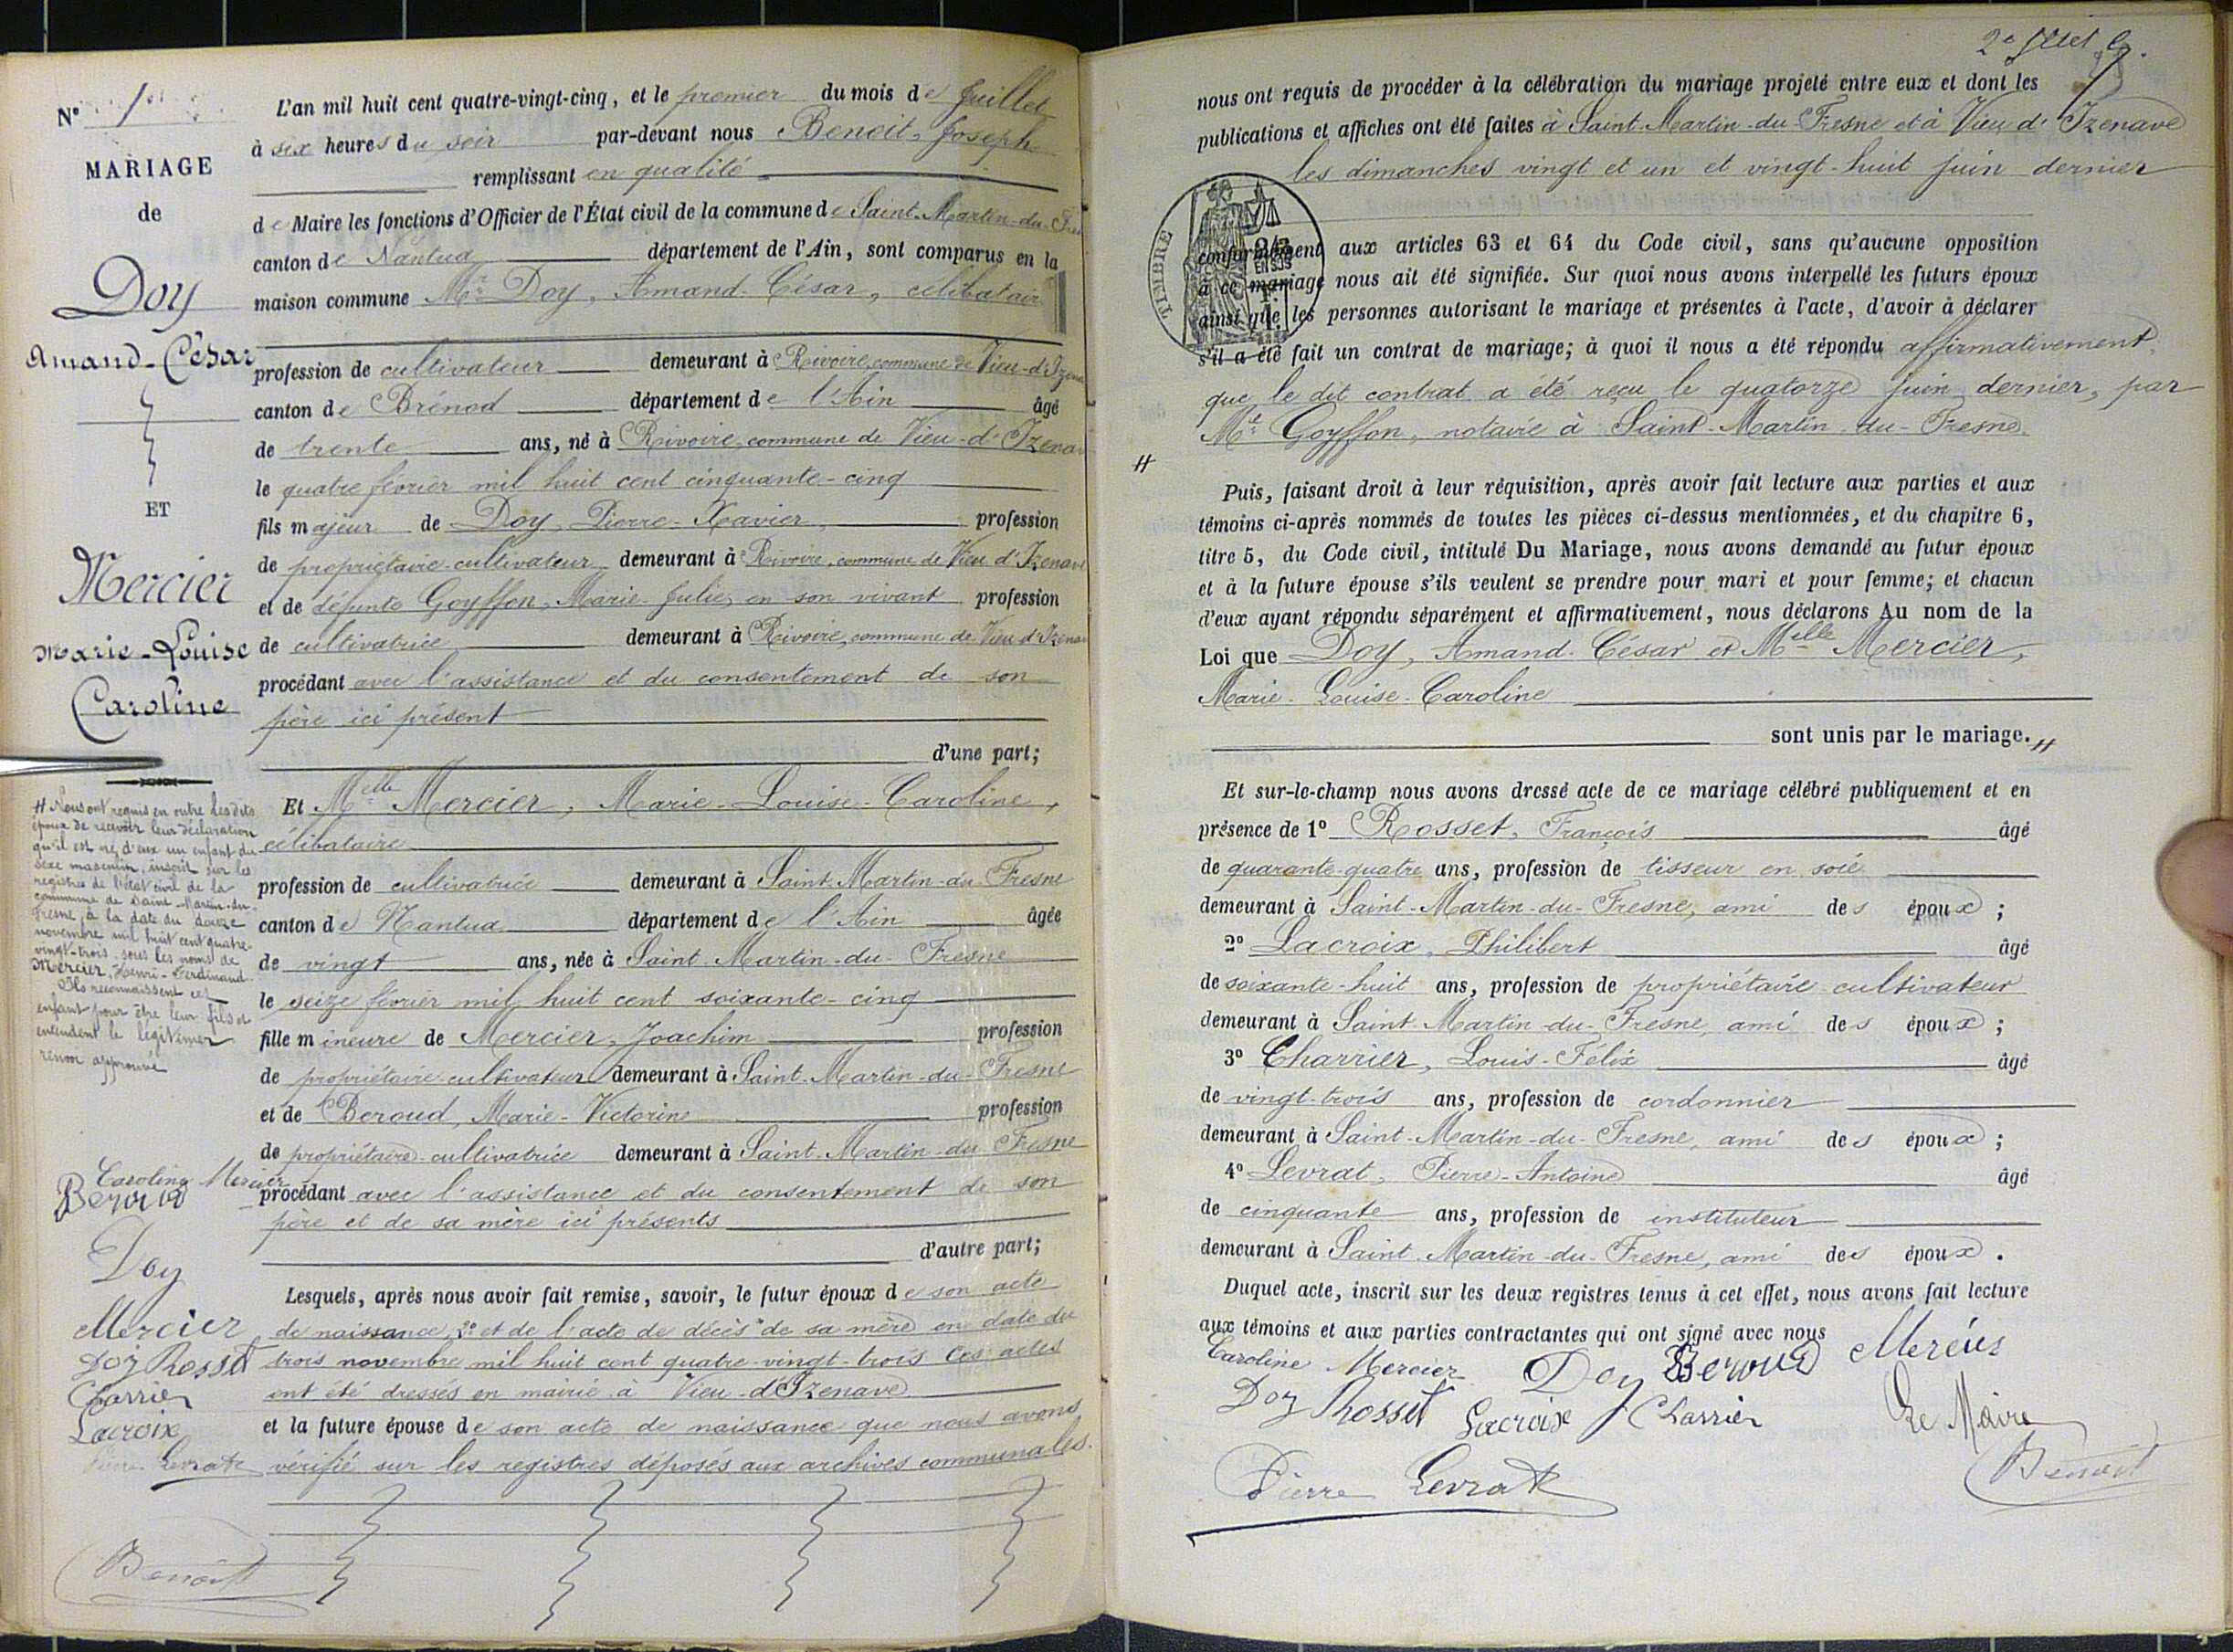 N° 1er
MARIAGE
de
Doy
Amand-César
ET
Mercier
Marie-Louise
Caroline
H Nous ont requis en outre les dits
époux de recevoir leur déclaration
qu'il est né d'eux un enfant du
sexe masculin, inscrit sur les
registres de l'état civil de la
commune de Saint-Martin-du-
Fresne, à la date du douze
novembre mil huit cent quatre-
vingt-trois sous les noms de
Mercier, Henri-Ferdinand.
Ils reconnaissent cet
enfant pour être leur fils et
entendent le légitimer
renvoi approuvé
Caroline Mercier
Beroud
Doy
Mercier
Doy Rosset
Charrier
Lacroix
Pierre Levrat
Benoit
L'an mil huit cent quatre-vingt-cinq, et le premier du mois de Juillet
à six heures du soir par-devant nous Benoit, Joseph
remplissant en qualité
de Maire les fonctions d'Officier de l'État civil de la commune de Saint-Martin-du-Fres
canton de Nantua département de l'Ain, sont comparus en la
maison commune Mr Doy, Amand-César, célibatair
profession de cultivateur demeurant à Rivoire, commune de Vieu-d'Izena
canton de Brénod département de l'Ain âgé
de trente ans, né à Rivoire, commune de Vieu-d'Izenav
le quatre février mil huit cent cinquante-cinq
fils majeur de Doy, Pierre-Xavier, profession
de propriétaire-cultivateur demeurant à Rivoire, commune de Vieu d'Izenave
et de défunte Goyffon, Marie-Julie, en son vivant profession
de cultivatrice demeurant à Rivoire, commune de Vieu d'Izenav
procédant avec l'assistance et du consentement de son
père ici présent
d'une part;
Et Melle Mercier, Marie-Louise-Caroline,
célibataire
profession de cultivatrice demeurant à Saint-Martin-du-Fresne
canton de Nantua département de l'Ain âgée
de vingt ans, née à Saint-Martin-du-Fresne
le seize février mil huit cent soixante-cinq
fille mineure de Mercier, Joachim profession
de propriétaire-cultivateur demeurant à Saint-Martin-du-Fresne
et de Beroud, Marie-Victorine profession
de propriétaire-cultivatrice demeurant à Saint-Martin-du-Fresne
procédant avec l'assistance et du consentement de son
père et de sa mère ici présents
d'autre part;
Lesquels, après nous avoir fait remise, savoir, le futur époux de son acte
de naissance, 2° et de l'acte de décès de sa mère en date du
trois novembre mil huit cent quatre-vingt-trois Ces actes
ont été dressés en mairie à Vieu-d'Izenave
et la future épouse de son acte de naissance que nous avons
vérifié sur les registres déposés aux archives communales.
nous ont requis de procéder à la célébration du mariage projeté entre eux et dont les
publications et affiches ont été faites à Saint-Martin-du-Fresne et à Vieu d'Izenave
les dimanches vingt et un et vingt-huit juin dernier
TIMBRE
conformément aux articles 63 et 64 du Code civil, sans qu'aucune opposition
à ce mariage nous ait été signifiée. Sur quoi nous avons interpellé les futurs époux
ainsi que les personnes autorisant le mariage et présentes à l'acte, d'avoir à déclarer
s'il a été fait un contrat de mariage; à quoi il nous a été répondu affirmativement,
que le dit contrat a été reçu le quatorze juin dernier, par
Me Goyffon, notaire à Saint-Martin-du-Fresne.
H
Puis, faisant droit à leur réquisition, après avoir fait lecture aux parties et aux
témoins ci-après nommés de toutes les pièces ci-dessus mentionnées, et du chapitre 6,
titre 5, du Code civil, intitulé Du Mariage, nous avons demandé au futur époux
et à la future épouse s'ils veulent se prendre pour mari et pour femme; et chacun
d'eux ayant répondu séparément et affirmativement, nous déclarons Au nom de la
Loi que Doy, Amand-César et Melle Mercier,
Marie-Louise-Caroline
sont unis par le mariage. H
Et sur-le-champ nous avons dressé acte de ce mariage célébré publiquement et en
présence de 1° Rosset, François âgé
de quarante-quatre ans, profession de tisseur en soie
demeurant à Saint-Martin-du-Fresne, ami des époux;
2° Lacroix, Philibert âgé
de soixante-huit ans, profession de propriétaire cultivateur
demeurant à Saint-Martin-du-Fresne, ami des époux;
3° Charrier, Louis-Félix âgé
de vingt-trois ans, profession de cordonnier
demeurant à Saint-Martin-du-Fresne, ami des époux;
4° Levrat, Pierre-Antoine âgé
de cinquante ans, profession de instituteur
demeurant à Saint-Martin-du-Fresne, ami des époux.
Duquel acte, inscrit sur les deux registres tenus à cet effet, nous avons fait lecture
aux témoins et aux parties contractantes qui ont signé avec nous
Caroline Mercier Doy Beroud Mercier
Doy Rosset Lacroix Charrier Le Maire
Pierre Levrat Benoit